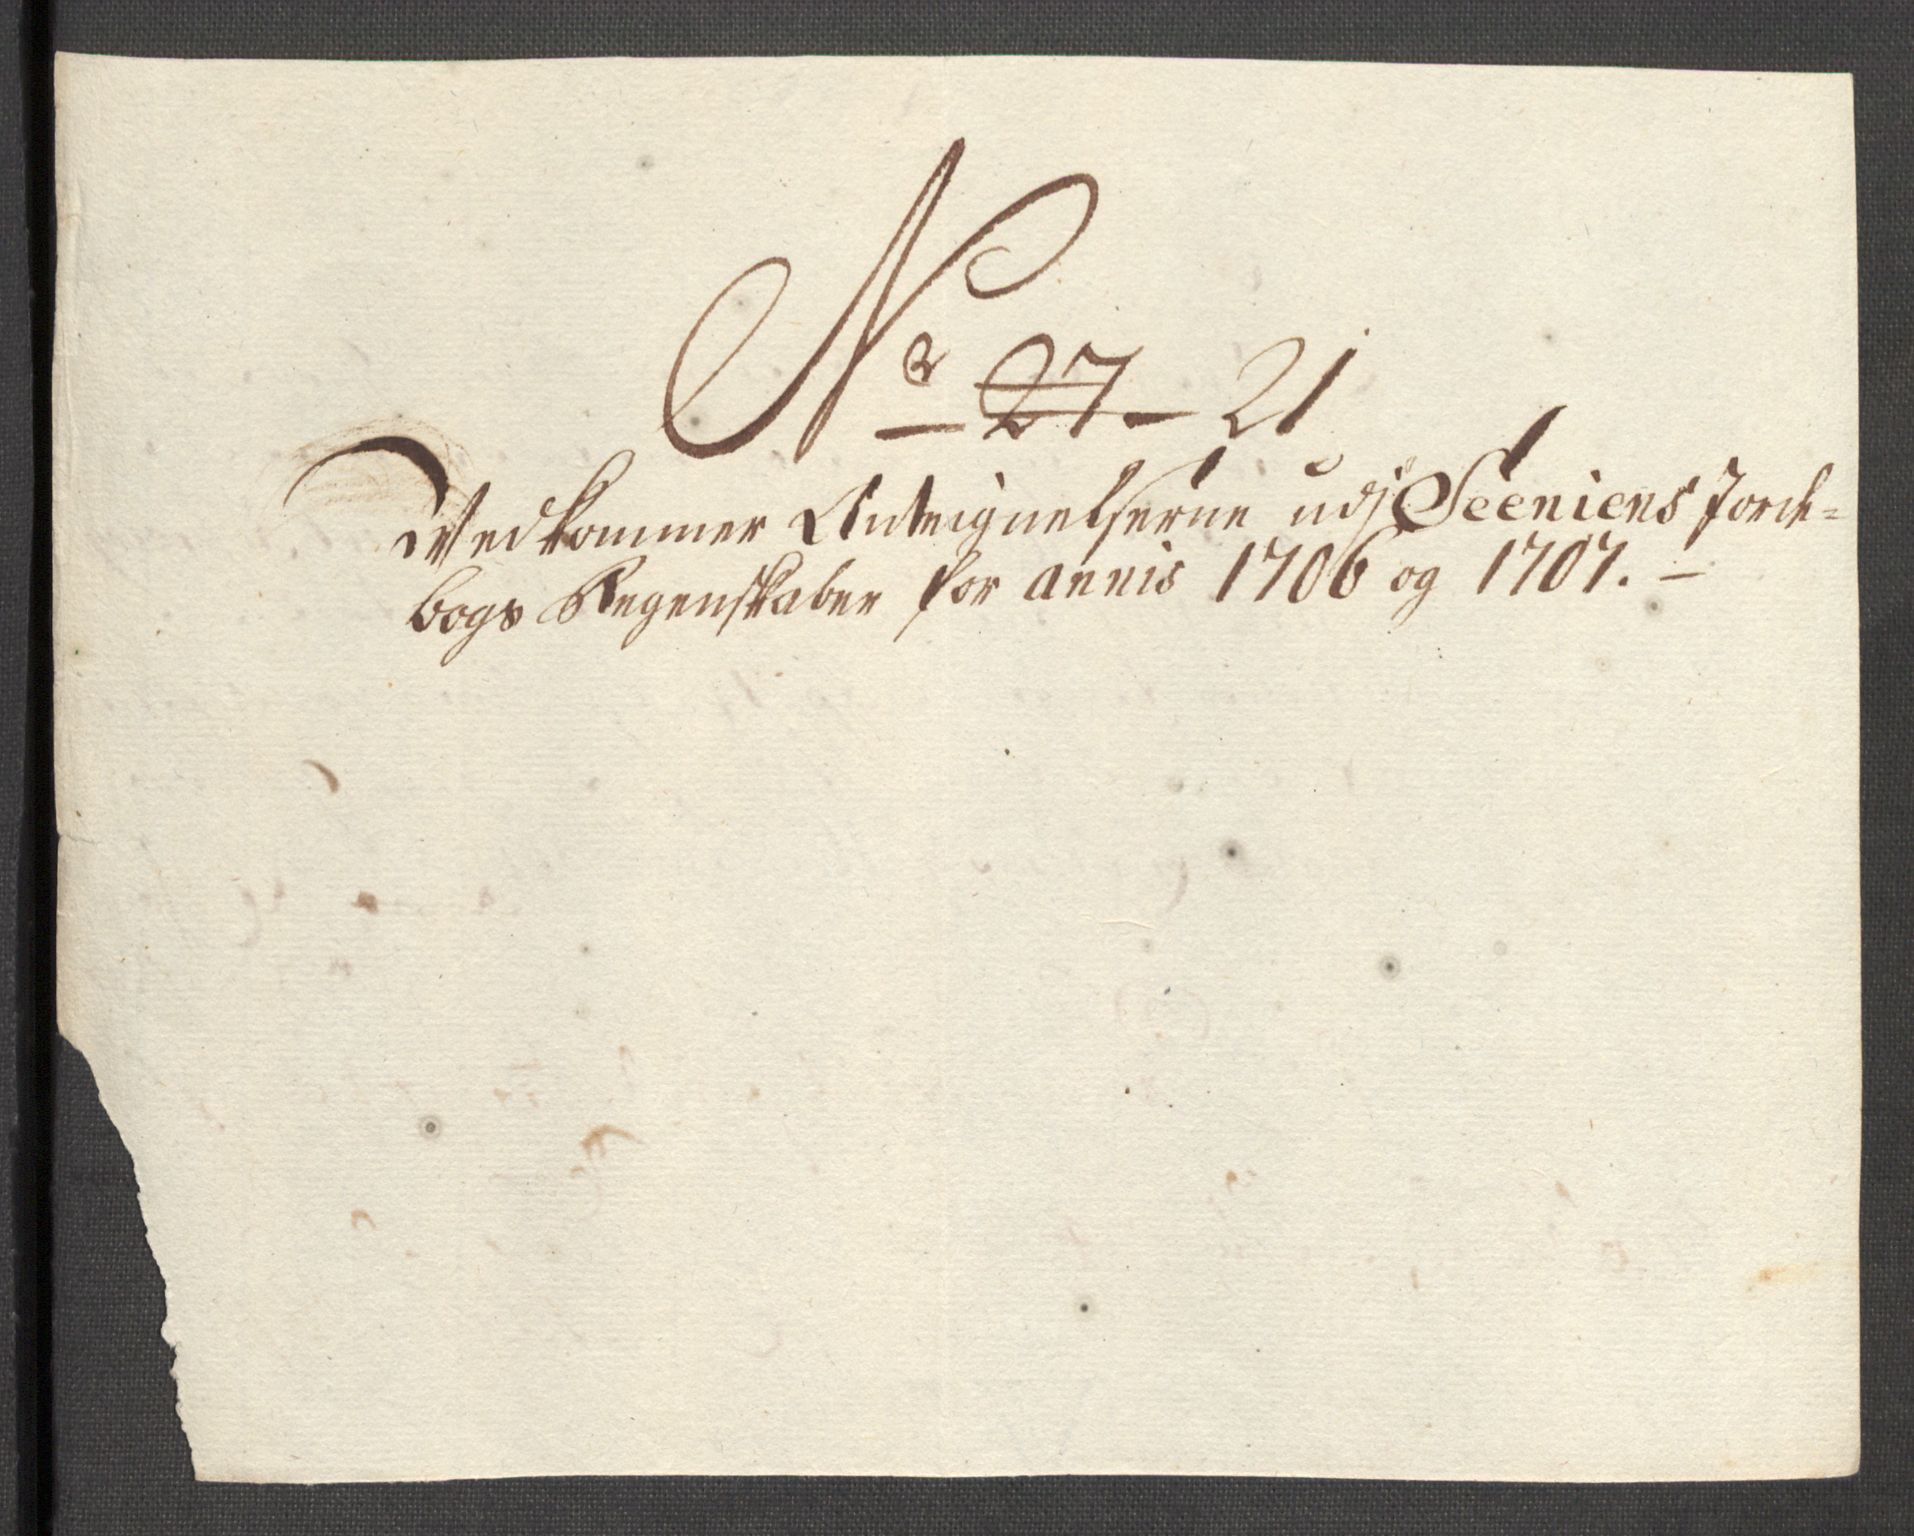 No 27. 21
Vedkommer Anteignelserne udj Seeniens Jorde=
bogs Regenskaber for annis 1706 og 1707. –